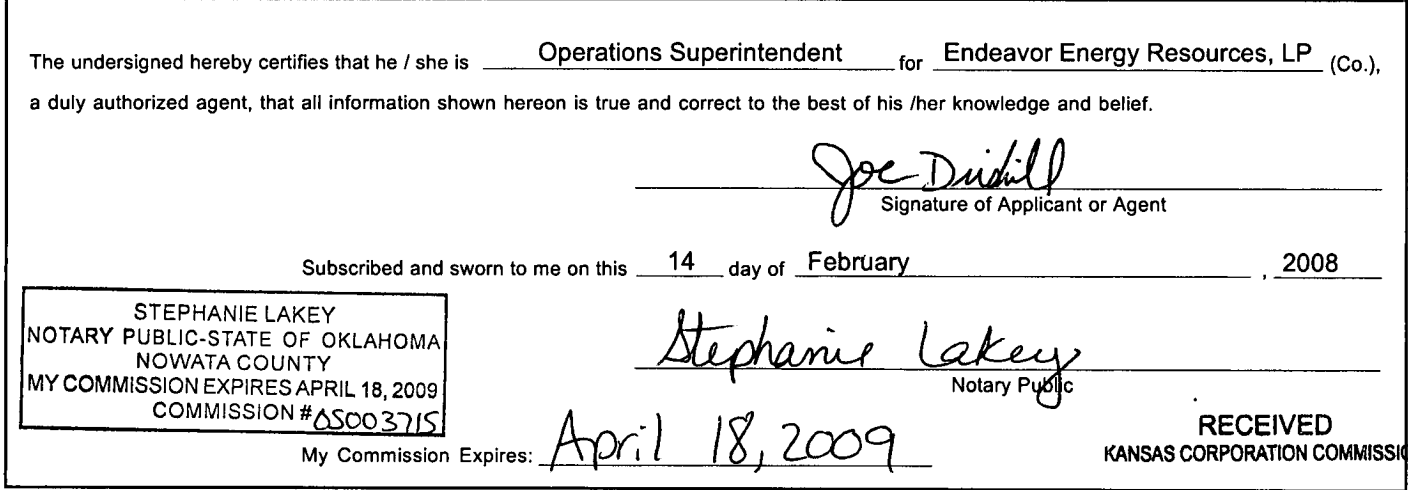 The undersigned hereby certifies that he / she is Operations Superintendent for Endeavor Energy Resources, LP (Co.),
a duly authorized agent, that all information shown hereon is true and correct to the best of his /her knowledge and belief.
Joe Driskill
Signature of Applicant or Agent
Subscribed and sworn to me on this 14 day of February , 2008
STEPHANIE LAKEY
NOTARY PUBLIC-STATE OF OKLAHOMA
NOWATA COUNTY
MY COMMISSION EXPIRES APRIL 18, 2009
COMMISSION # 05003715
Stephanie Lakey
Notary Public
My Commission Expires: April 18, 2009
RECEIVED
KANSAS CORPORATION COMMISSI